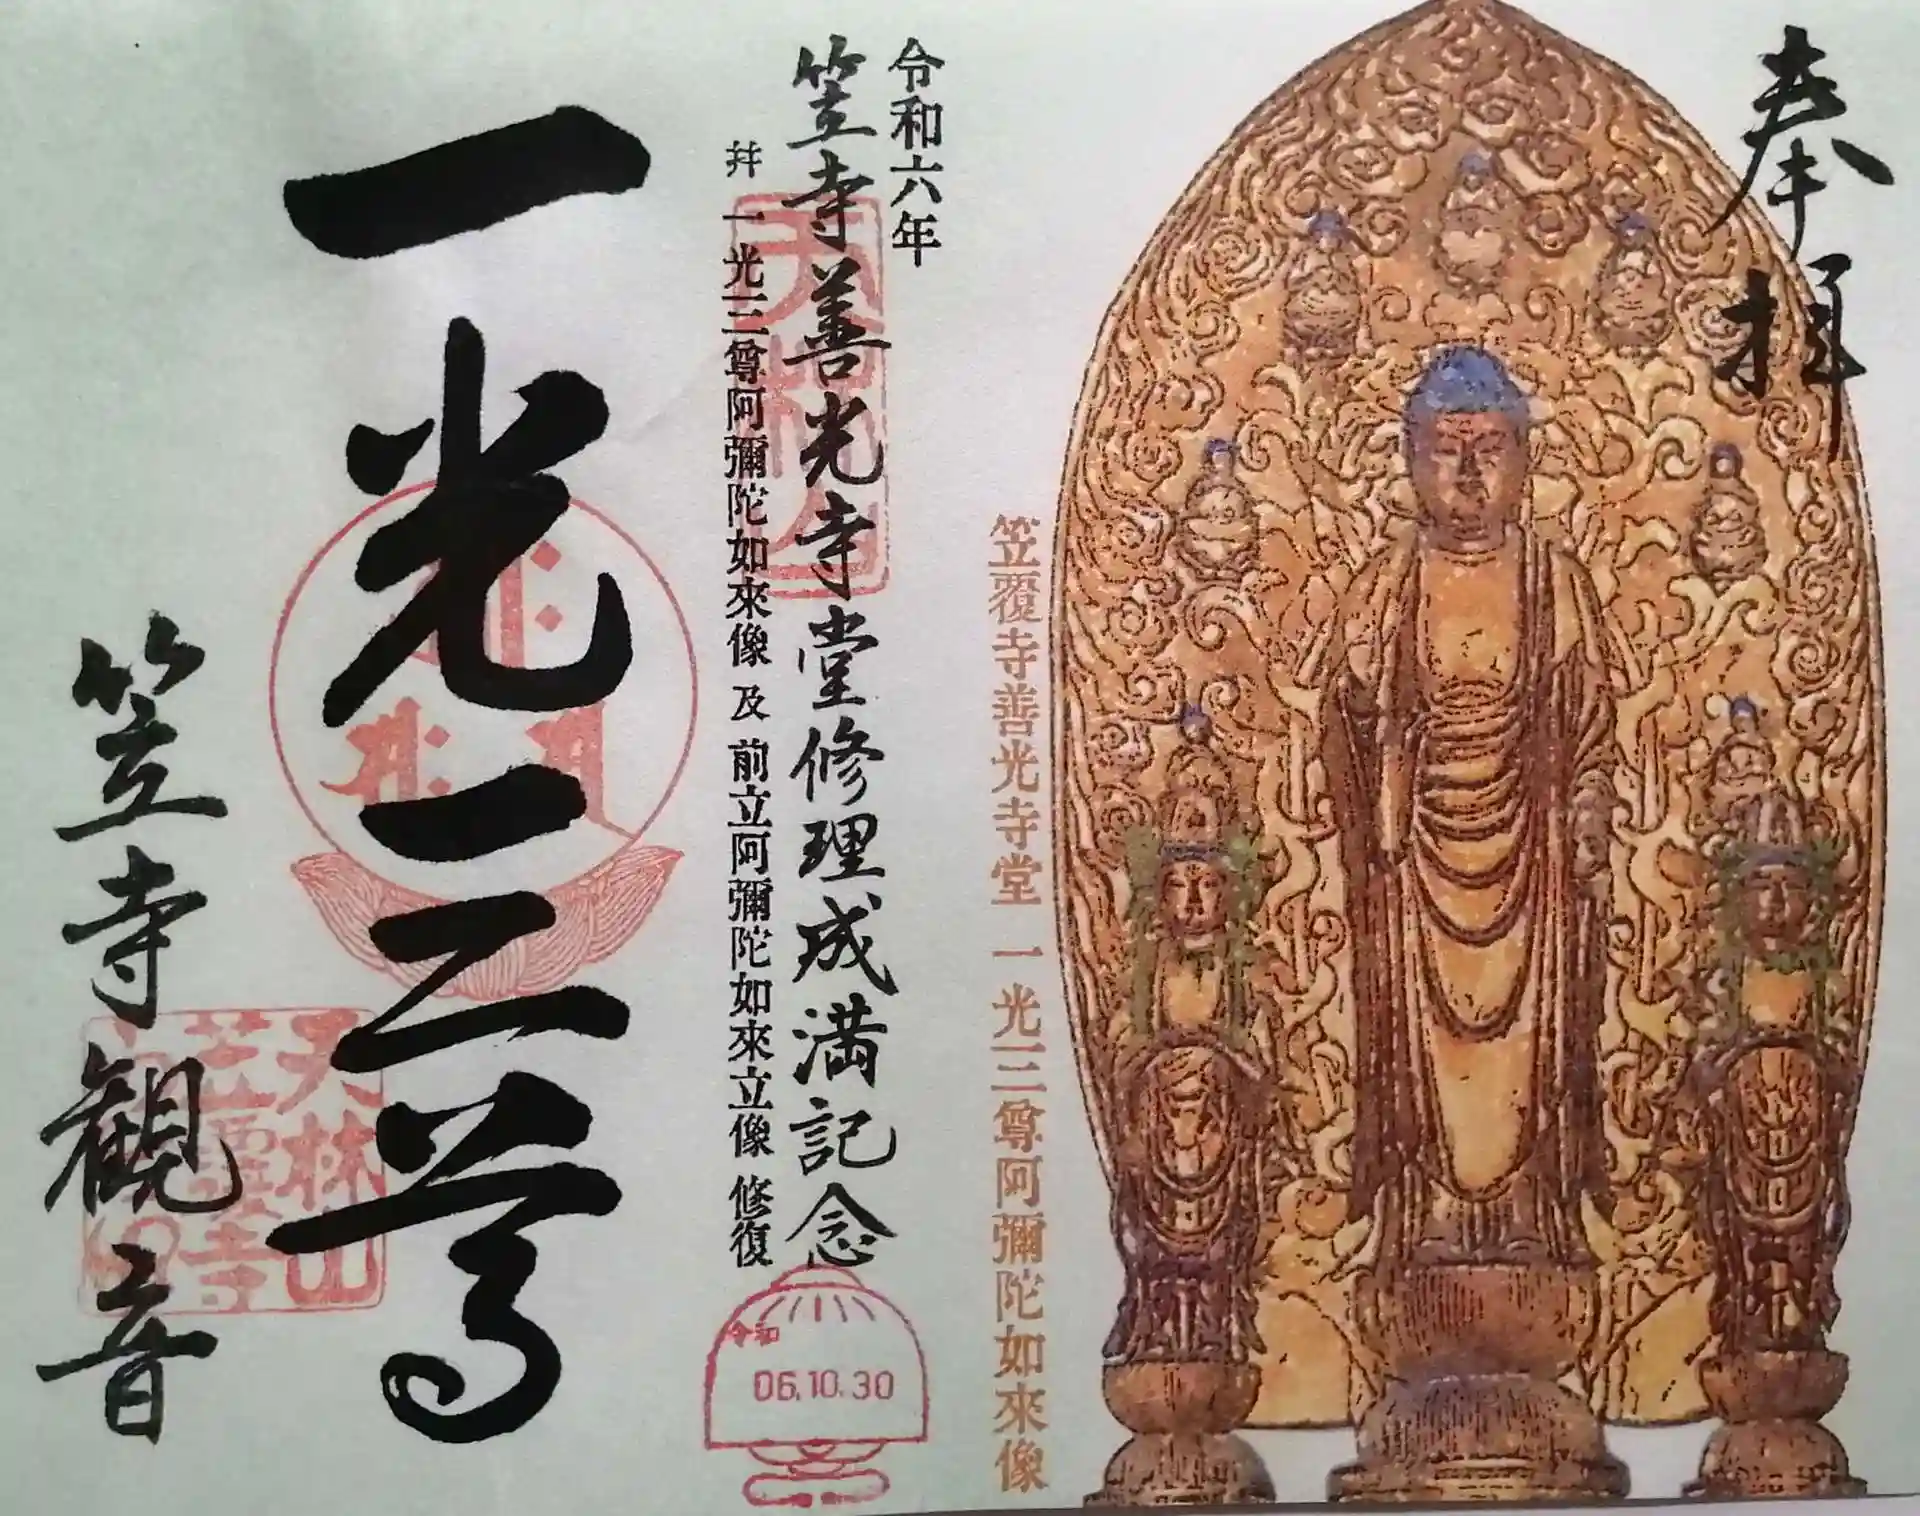 奉拝
笠覆寺善光寺堂 一光三尊阿彌陀如來像
令和六年
笠寺善光寺堂修理成満記念
并 一光三尊阿彌陀如來像 及 前立阿彌陀如來立像 修復
令和
06.10.30
一光三尊
天林山
笠覆寺
笠寺觀音